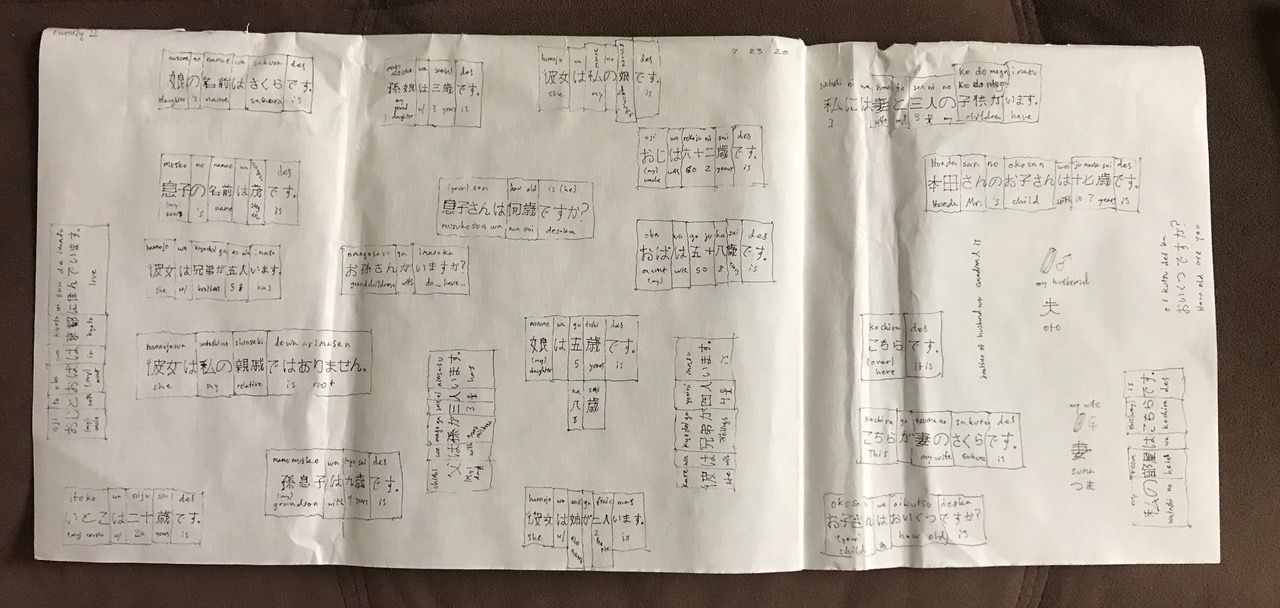 Family II
7 23 20
musume no namae wa sakura des
娘の名前はさくらです。
daughter's name sakura is
wa sansai des
孫娘は三歳です。
(my) grand daughter w/ 3 years is
kanojo wa no des
彼女は私の娘です。
she my daughter is
oji wa rokuju ni sai des
おじは六十二歳です。
(my) uncle with 60 2 years is
ko do mo ga i masu
私には妻と三人の子供がいます。
I wife and 3 my children have
musko no namae wa des
息子の名前は茂です。
(my) son 's name is
(your) son how old is (he)
息子さんは何歳ですか?
musuko san wa nan sai deska
Honda san no okosan wa ju nana sai des
本田さんのお子さんは十七歳です。
Honda Mr. 's child with 10 7 years is
oba wa go ju ha sai des
おばは五十八歳です。
aunt with 50 8 years is
(my)
kanojo wa kyodai ga go nin imasu
彼女は兄弟が五人います。
she w/ brothers 5 has
omagosan ga imasuka
お孫さんがいますか?
grandchildren with do.. have..
oji to oba wa kyoto ni sun de imasu
おじとおばは京都に住んでいます。
(my) uncle with (my) aunt in kyoto live
kanojowa watashino shinseki dewa arimasen
彼女は私の親戚ではありません。
she my relative is not
musume wa go sai des
娘は五歳です。
(my) daughter 5 years is
八歳
8
chichi wa mago ga imasu
父は孫が三人います。
(my) dad with 3 has
kare wa kyodai ga yonin imasu
彼は兄弟が四人います。
He siblings 4
wa kyu sai des
孫息子は九歳です。
(my) grandson with 9 years is
itoko wa niju sai des
いとこは二十歳です。
(my) cousin w/ 20 years is
kanojo wa ane ga
彼女は姉が二人います。
she w/ 2
kochira des
こちらです。
(over) here it is
my husband
夫
oto
oi kutsu des ka
おいくつですか?
How old are you
kochira ga tsuma no sakura des
こちらが妻のさくらです。
This my wife Sakura is
my wife
妻
つま
okosan wa oikutso deska
お子さんはおいくつですか?
(your) child how old is
my room is
私の部屋はこちらです。
watashi no heya wa kochira des